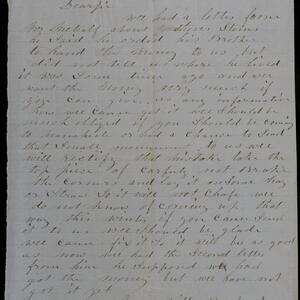 Dear Sir
We had a letter from
about Stone
he said he orderd his Brother
to hand the money to us but
did not tell us where he lived
it was some time ago and we
want the money very much if
you can give us any information
how we can get it we should be
much obliged if you should be coming
to or had a chance to send
that small monument to us we
will rectify that mistake take the
top piece of carfuly not Brake
the corners and lay it
so it will not Chafe we
do not know of coming up that
way this winter if you can send
it to us we should be glad
we can fix it so it will be as good
as now we had the second letter
from him he supposed we had
got the money but we have not
got it yet